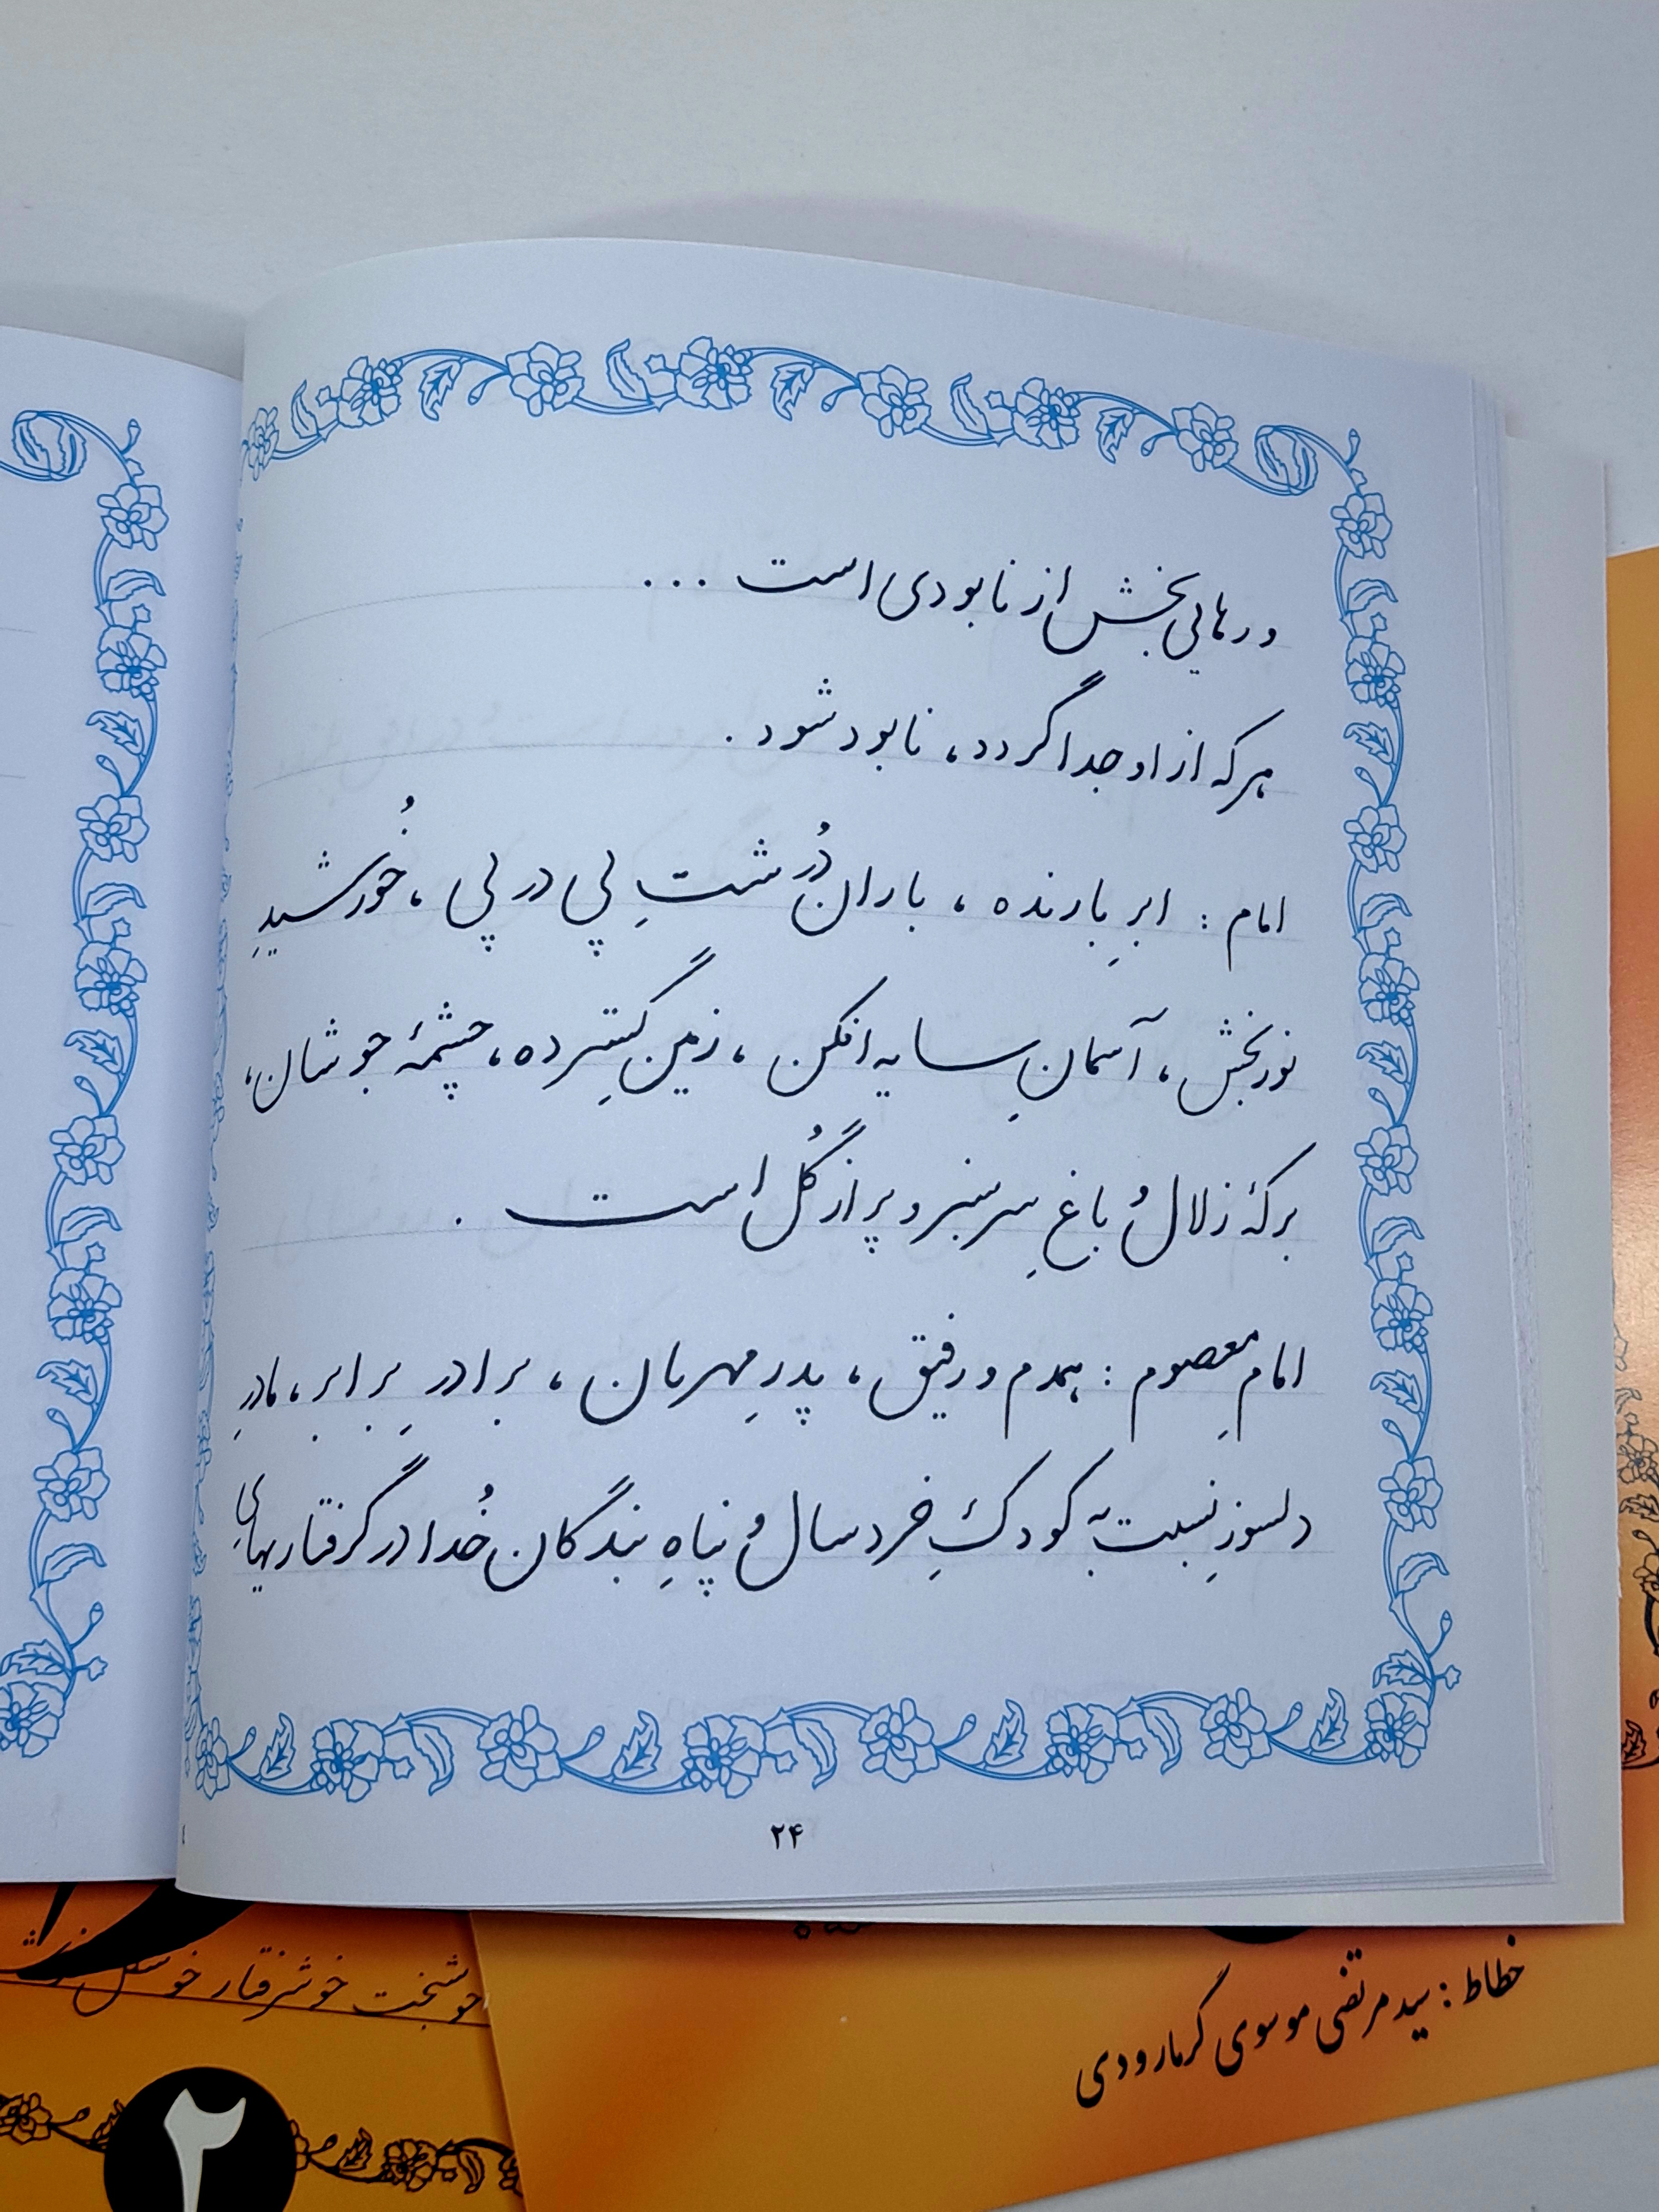 و رهایی‌بخش از نابودی است ...
هر که از او جدا گردد، نابود شود .
امام : ابرِ بارنده ، بارانِ دُرشتِ پی در پی ، خُورشیدِ
نوربخش ، آسمانِ سایه افکن ، زمینِ گسترده ، چشمهٔ جوشان ،
برکهٔ زلال وُ باغِ سرسبز و پر از گُل است .
امامِ معصوم : همدم و رفیق ، پدرِ مهربان ، برادرِ برابر ، مادرِ
دلسوزِ نسبت به کودکِ خردسال وُ پناهِ بندگان خُدا در گرفتاریهای
۲۴
خطاط : سید مرتضی موسوی گرمارودی
۲